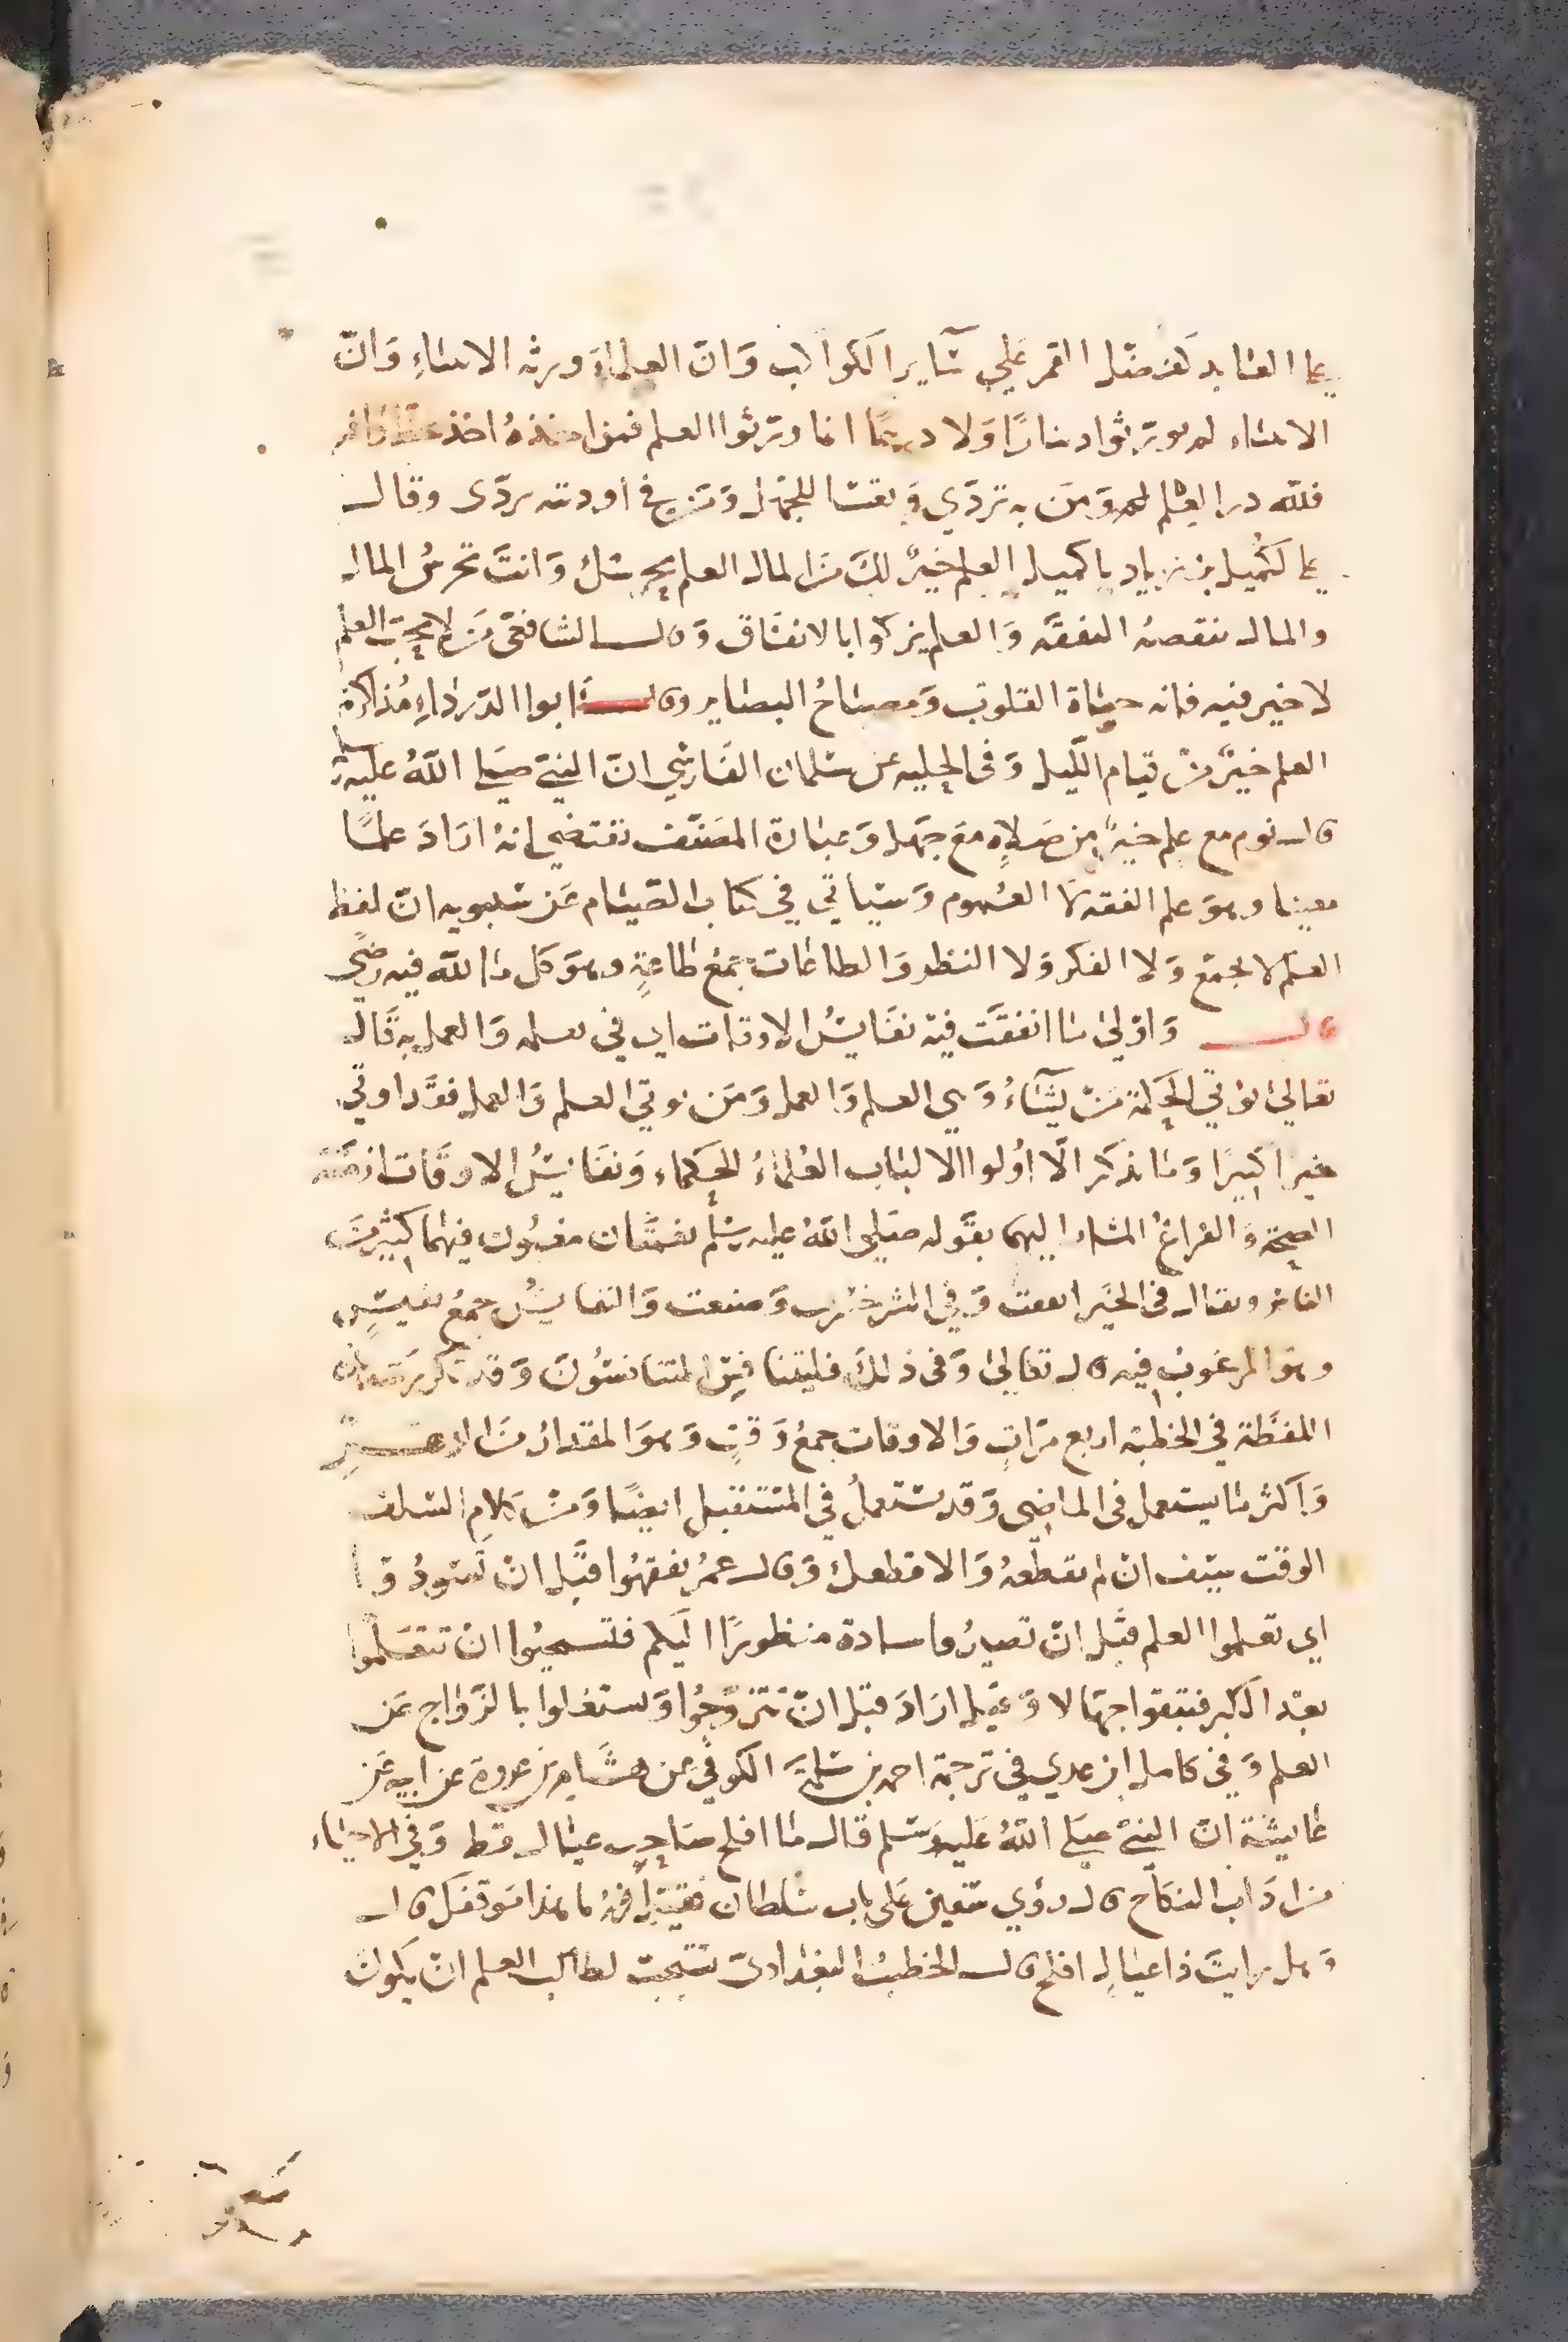 على العابد كفضل القمر على ساير الكواكب وَانّ العلماءَ ورثه الانبياءِ وَانّ
الانبياء لم يورّثوا دينارًا وَلا درهمًا انما ورّثوا العلم فمن اخذهُ اخذ بحظ وافر
فللّه در العِلم وَمَن به تردّي وَتعسًا للجهل وَمَن في اوديته تردّى وقال
علي لكُميل بن زياد يا كميل العلم خيرٌ لكَ مَن المال العلم يحرسك وَانتَ تحرسُ المال
والمال تنقصه النفقَة وَالعلم يزكوا بالانفاق وَقال الشافعىّ مَن لا يحبّ العلم
لا خير فيه فانه حياة القلوب وَمصباحُ البصاير وقال ابوا الدّرداءِ مُذاكرة
العلم خيرٌ منْ قيام اللّيل وَفى الحليه عن سَلمان الفَارسي انّ النبىّ صَلى اللّهُ عليه وسلم
قال نوم مع علم خيرٌ من صَلاةٍ معَ جهل وَعبارة المصَنّف تقتضى انهُ ارَادَ علمًا
معينا وهوَ علم الفقه لَا العموم وَسيأتي في كتاب الصّيام عَن سيبويه انّ لفظ
العلم لا يجمعَ وَلا الفكر وَلا النظر وَالطاعات جمعُ طاعةٍ وهوَ كل ما للّه فيه رضًى
قال وَاوْلىٰ ما انفقَت فيه نفَايسُ الاوقات اى في تعلمه وَالعمل به قَال
تعالىٰ يؤتي الحكمة مَنْ يشَاءُ وَهي العلم وَالعمل وَمَن يوتي العلم وَالعمل فقَد اوتي
خيرا كثيرًا وَما يذكر الّا اُولوا الالباب العُلماءُ الحكماء وَنفَايسُ الاوقَات ازمنة
الصحة وَالفراغُ المشار اليهما بقَوله صَلى اللّهُ عليه وسَلم نعمتَان مغبُون فيهما كثيرمنَ
الناس ويقال فى الخَير انفقت وَفي الشر خسَرت وَضيعت وَالنفايسُ جمعُ نفيسَةٍ
وهوَ المرغوبُ فيه قال تعالىٰ وَفى ذلكَ فليتنافسِ المتنافسُونَ وَقد تكررَت هذه
اللفظَة في الخطبة اربع مرّاتٍ وَالاوقات جمعُ وَقتٍ وَهوَ المقدارُ منَ الدهـــرِ
وَاكثر ما يستعمل فى الماضى وَقد يستعملُ في المستقبل ايضًا وَمنْ كلامِ السّلف
الوقت سَيف انْ لم تقطَعهُ وَالا قطعك وَقال عمرُ تفقهُوا قبَل انْ تَسَودُوا
اى تعلموا العلم قبَل انْ تصيرُوا سادة منظورًا اليَكم فتستحيُوا انْ تتعَلّموا
بعَد الكبر فتبقوا جهَالا وَقيل ارَادَ قبل انْ تتزوَّجُوا وَتستغلوا بالزَّواج عَن
العلم وَفي كامل ابن عدي في تَرجمة احمد بن سَلمَة الكوفي عن هشَام بن عروة عن ابيه عَن
عايشة انّ النبىّ صَلى اللّهُ عَليهِ وَسَلم قال ما افلح صَاحب عيال قط وَفي الاحياء
من آدَاب النكاح قال رؤي سفين عَلى باب سَلطان فقيلَ لهُ ما هذا مَوقفك قال
وَهل رايتَ ذا عيالٍ افلح قال الخطيبُ البغدادىّ يستحبّ لطالب العلم انْ يكونَ